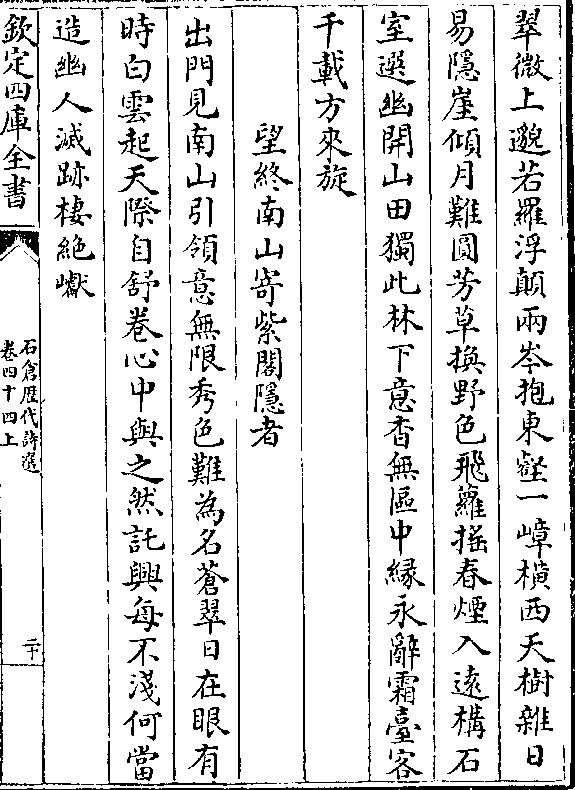 翠微上邈若羅浮顛兩岑抱東壑一嶂橫西天樹雜日
易隱崖傾月難圓芳草換野色飛蘿搖春煙入遠構石
室選幽開山田獨此林下意杳無區中緣永辭霜臺客
千載方來旋
望終南山寄紫閣隱者
出門見南山引領意無限秀色難為名蒼翠日在眼有
時白雲起天際自舒卷心中與之然託興每不淺何當
造幽人滅跡棲絕巘
欽定四庫全書
石倉歷代詩選
卷四十四上
二十